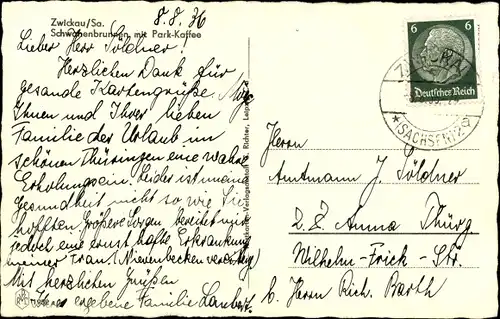 Zwickau/Sa.
Schwanenbrunnen mit Park-Kaffee
8.8.36
Lieber Herr Söldner!
Herzlichen Dank für
gesande Kartengrüße. Möge
Ihnen und Ihrer lieben
Familie der Urlaub im
schönen Thüringen eine wahre
Erholung sein. Leider ist meine
Gesundheit nicht so wie Sie
hofften. Größere Sorgen bereitet mir
jedoch eine ernsthafte Erkrankung
meiner Frau. (Nierenbecken
Mit herzlichen Grüßen
Ihre ergebene Familie
Richter, Leipzig
6
Deutsches Reich
ZWICKAU
(SACHSEN)
Herrn
Amtmann J. Söldner
z. Z. Thürg
Wilhelm-Frick-Str.
b. Herrn Rich. Barth